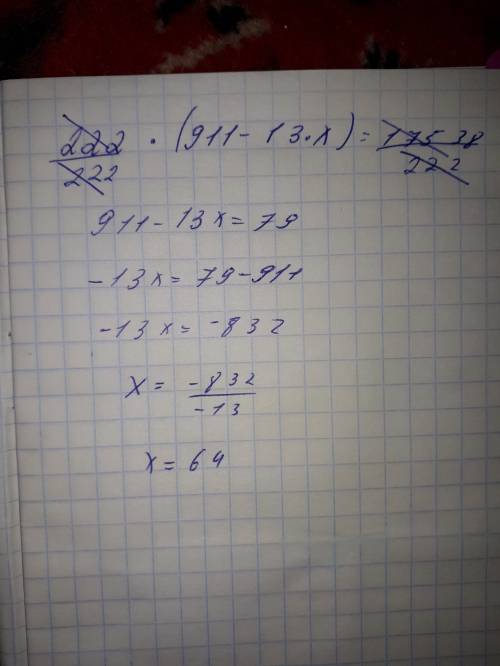 222/222 · (911 - 13·x) = 17538/222
911 - 13x = 79
-13x = 79 - 911
-13x = -832
x = -832/-13
x = 64